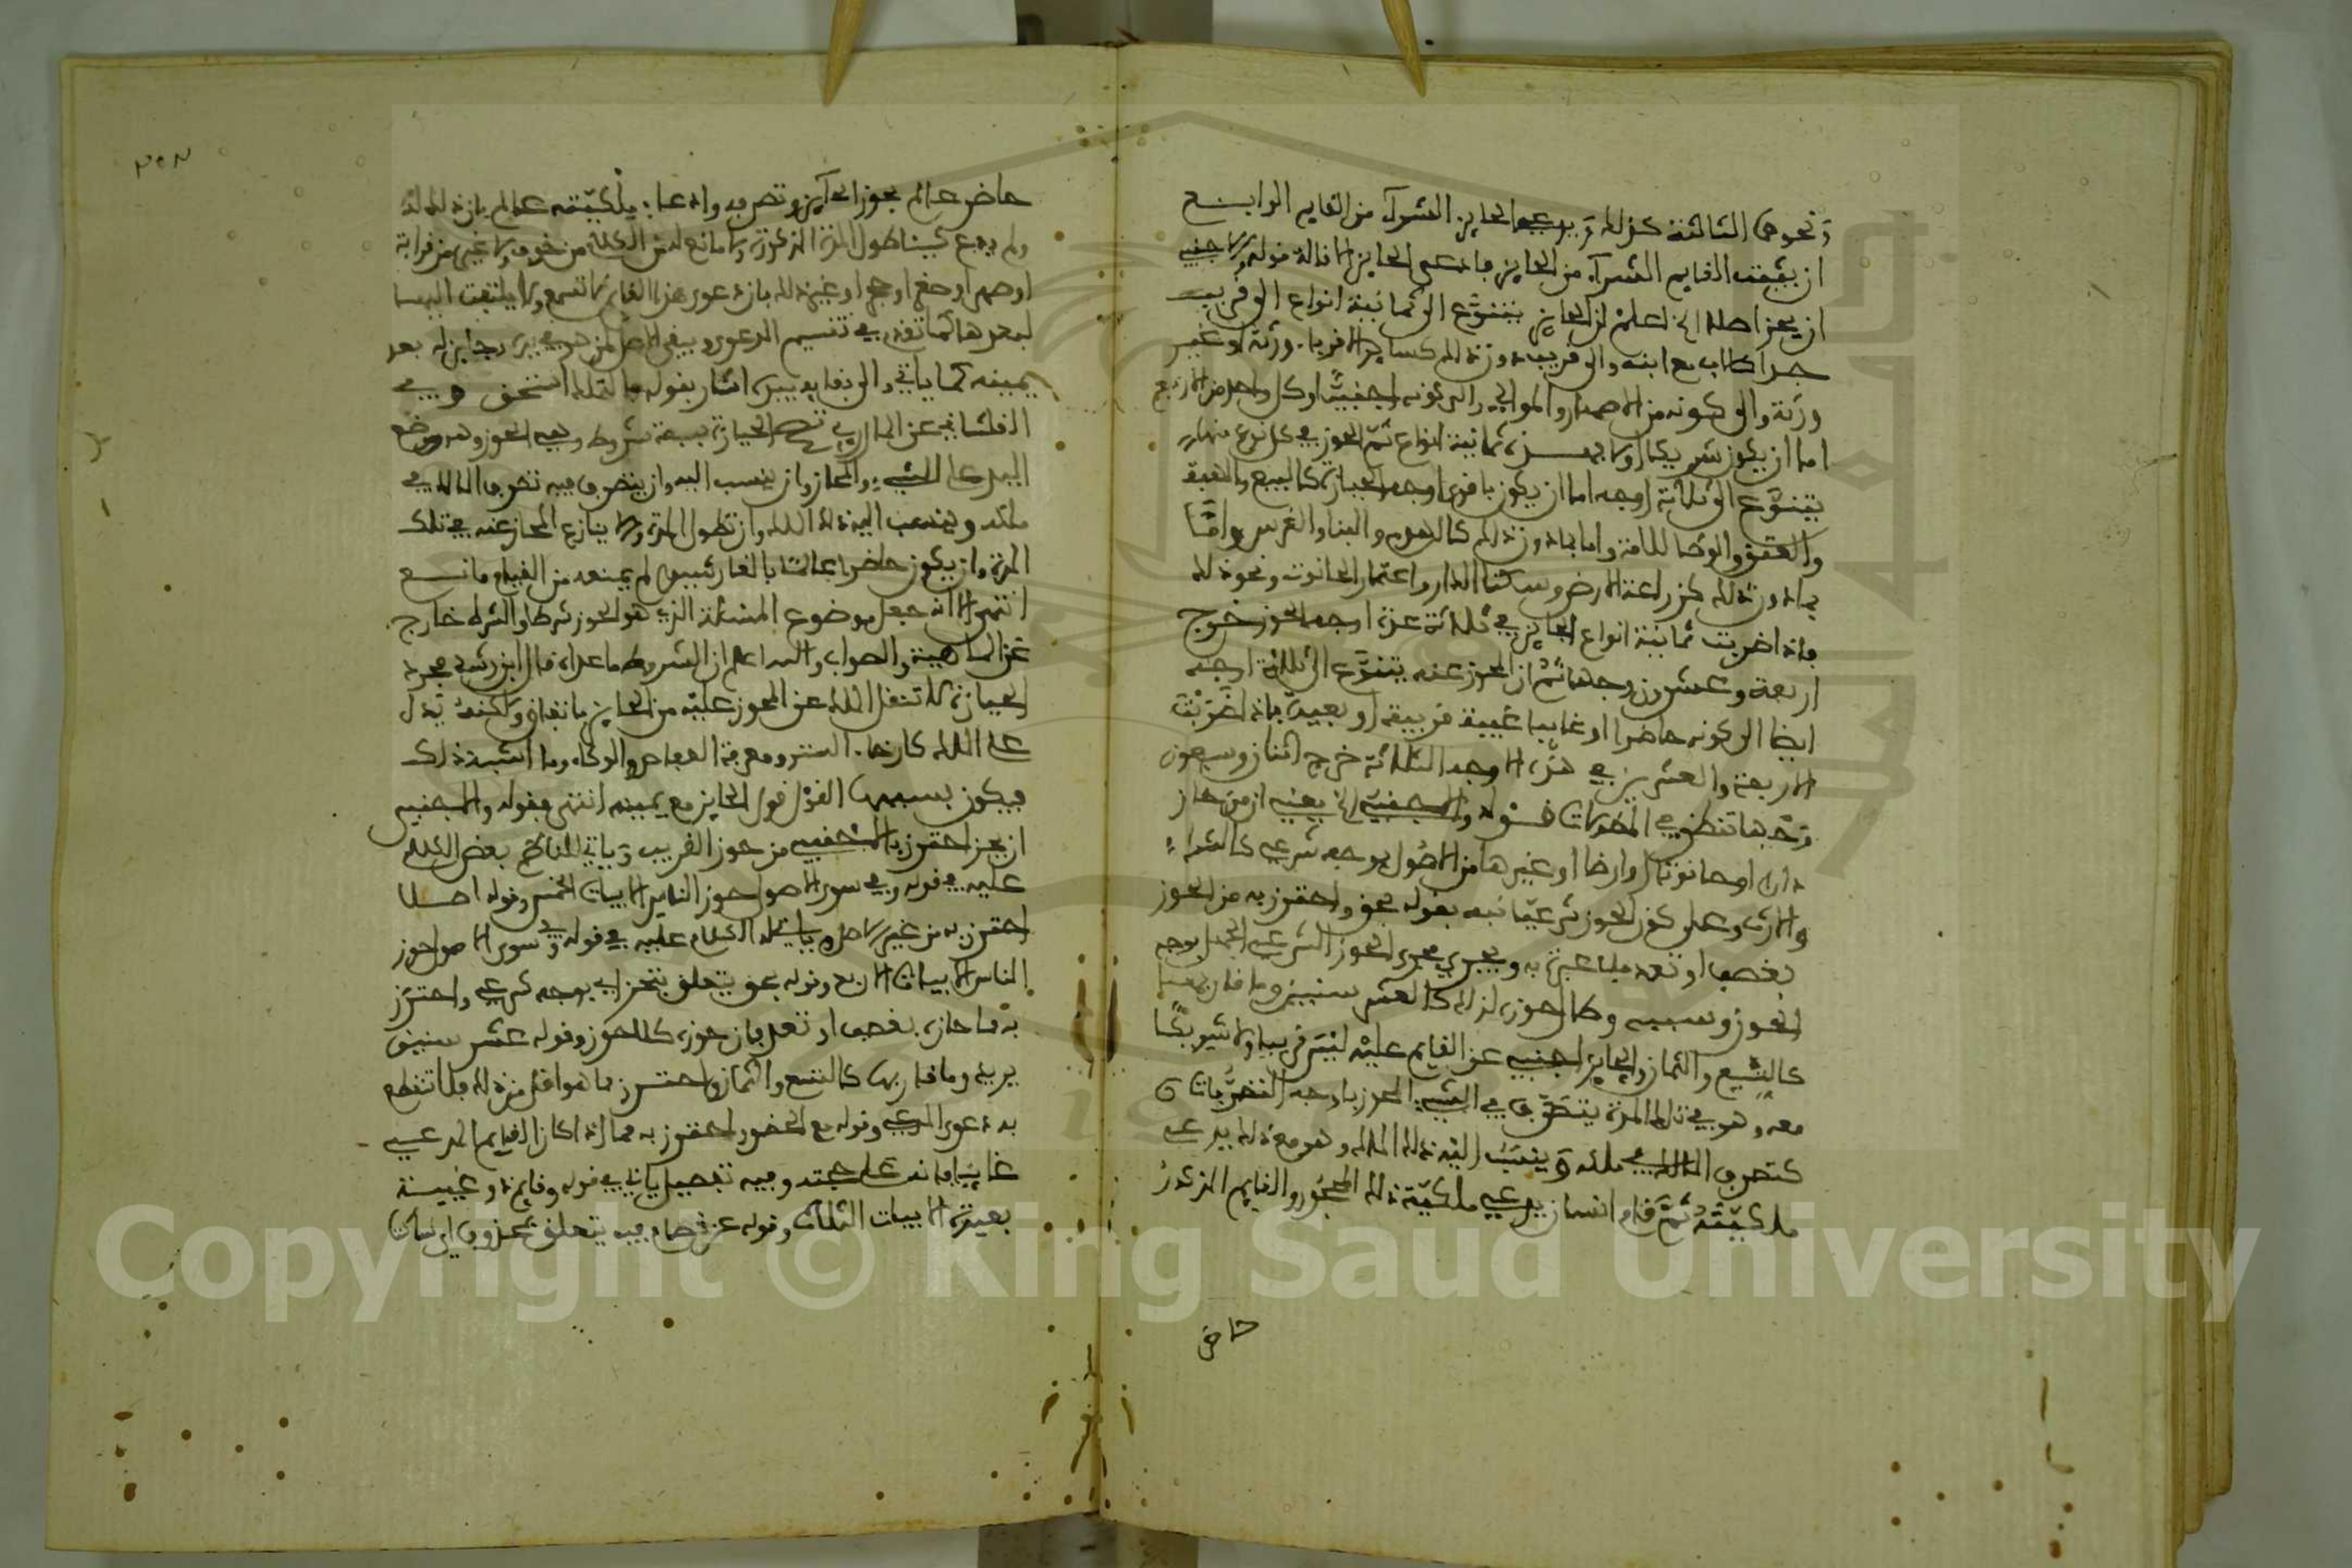 ونحوها الثالثة كذلك ويدعي الحايز الشراء من القايم الرابع
ان يثبت القايم الشراء من الحايز فادعى الحايز الاقالة قوله والاجنبي
ان يحز اصلا الخ اعلم ان الحايز يتنوع الى ثمانية انواع الى قريب
جدا كالاب مع ابنه والى قريب دون ذلك كساير الاقرباء ورثة او غير
ورثة والى كونه من الاصهار والموالي والى كونه اجنبيا وكل واحد من الاربع
اما ان يكون شريكا او لا فهذه ثمانية انواع ثم الحوز في كل نوع منها
يتنوع الى ثلاثة اوجه اما ان يكون باقوى اوجه الحيازة كالبيع والهبة
والعتق والوطء للامة واما بما دون ذلك كالهدم والبناء والغرس واما
بما دون ذلك كزراعة الارض وسكنا الدار واعتمار الحانوت ونحو ذلك
فاذا ضربت ثمانية انواع الحايز في ثلاثة عدة اوجه الحوز خرج
اربعة وعشرون وجها ثم ان المحوز عنه يتنوع الى ثلاثة اوجه
ايضا الى كونه حاضرا او غايبا غيبة قريبة او بعيدة فاذا ضربت
الاربعة والعشرين في هذه الاوجه الثلاثة خرج اثنان وسبعون
وجها تنظر في المطولات قوله والاجنبي الخ يعني ان من حاز
دارا او حانوتا او ارضا او غيرها من الاصول بوجه شرعي كالشراء
والارث وعلى كون الحوز شرعيا نبه بقوله بحق واحترز به من الحوز
بغصب او تعد فلا عبرة به ويجري مجرى الحوز الشرعي الجهل بوجه
الحوز وسببه وطال حوزه لذلك كالعشر سنين وما قاربها
كالتسع والثمان والحايز اجنبي عن القايم عليه ليس قريبا ولا شريكا
معه وهو في تلك المدة يتصرف في الشيء المحوز باوجه التصرفات
كتصرف المالك في ملكه وينسب اليه ذلك الملك وهو مع ذلك يدعي
ملكيته ثم قام انسان يدعي ملكية ذلك المحوز والقايم المذكور
حاض
حاضر عالم بحوز الحايز وتصرفه وادعائه ملكيته عالم بان ذلك له
ولم يدع شيئا طول المدة المذكورة ولا مانع له من الكلام من خوف ولا غيره من قرابة
او صهر او صغر او جهل او غير ذلك فان دعوى هذا القايم لا تسمع ولا يلتفت اليها
لبعدها كما تقدم في تقسيم الدعوى ويبقى الاصل لمن هو في يده وحايزه بعد
يمينه كما ياتي والى بقايه بيده اشار بقوله فالتملك استحق وفي
الفلشاني عن المازري تصح الحيازة بستة شروط وهي الحوز وهو وضع
اليد على الشيء المحاز وان ينسب اليه وان يتصرف فيه تصرف المالك في
ملكه وينسب اليه ذلك الملك وان تطول المدة ولا ينازع المحاز عنه في تلك
المدة وان يكون حاضرا عالما بالغا رشيدا لم يمنعه من القيام مانع
انتهى الا انه جعل موضوع المسئلة الذي هو الحوز شرطا والشرط خارج
عن الماهية والصواب والله اعلم ان الشروط ما عداه قال ابن رشد مجرد
الحيازة لا تنقل الملك عن المحوز عليه من الحايز باتفاق ولكنه تدل
على الملك كارخاء الستر ومعرفة العفاص والوكاء وما اشبه ذلك
فيكون بسببها القول قول الحايز مع يمينه انتهى فقوله والاجنبي
ان يحز احترز بالاجنبي من حوز القريب وياتي للناظم بعض الكلام
عليه في قوله وفي سوى الاصول حوز الناس الابيات الخمس وقوله اصلا
احترز به من غير الاصول ياتي له الكلام عليه في قوله وفي سوى الاصول حوز
الناس الابيات الاربع وقوله بحق يتعلق بيحز اي بوجه شرعي واحترز
به مما حازه بغصب او تعد فان حوزه كلا حوز وقوله عشر سنين
يريد وما قاربها كالتسع والثمان واحترز مما هو اقل من ذلك فلا تنقطع
به دعوى المدعي وقوله مع الحضور احترز به مما اذا كان القايم المدعي
غايبا فانه على حجته وفيه تفصيل ياتي في قوله وقايم ذو غيبة
بعيدة الابيات الثلاث وقوله عن خصام فيه يتعلق بمحذوف اي ساكتا